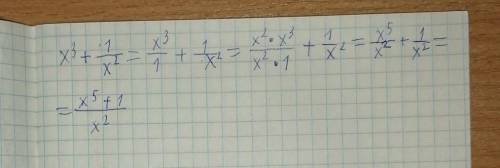 x³ + 1/x² = x³/1 + 1/x² = x²•x³/x²•1 + 1/x² = x⁵/x² + 1/x² =
= x⁵+1/x²